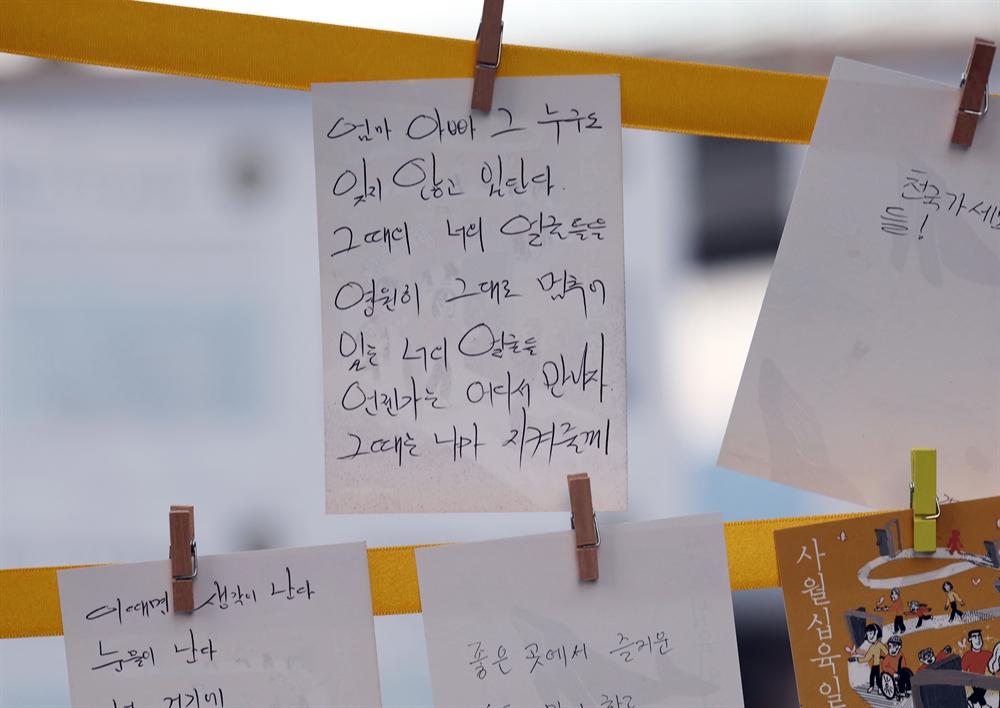 엄마 아빠 그 누구도
잊지 않고 있단다.
그때의 너의 얼굴들을
영원히 그대로 멈추어
있는 너의 얼굴들
언젠가는 어디서 만나자.
그때는 내가 지켜줄께
천국가세
들!
이때면 생각이 난다
눈물이 난다
거기에
좋은 곳에서 즐거운
하고
사월십육일